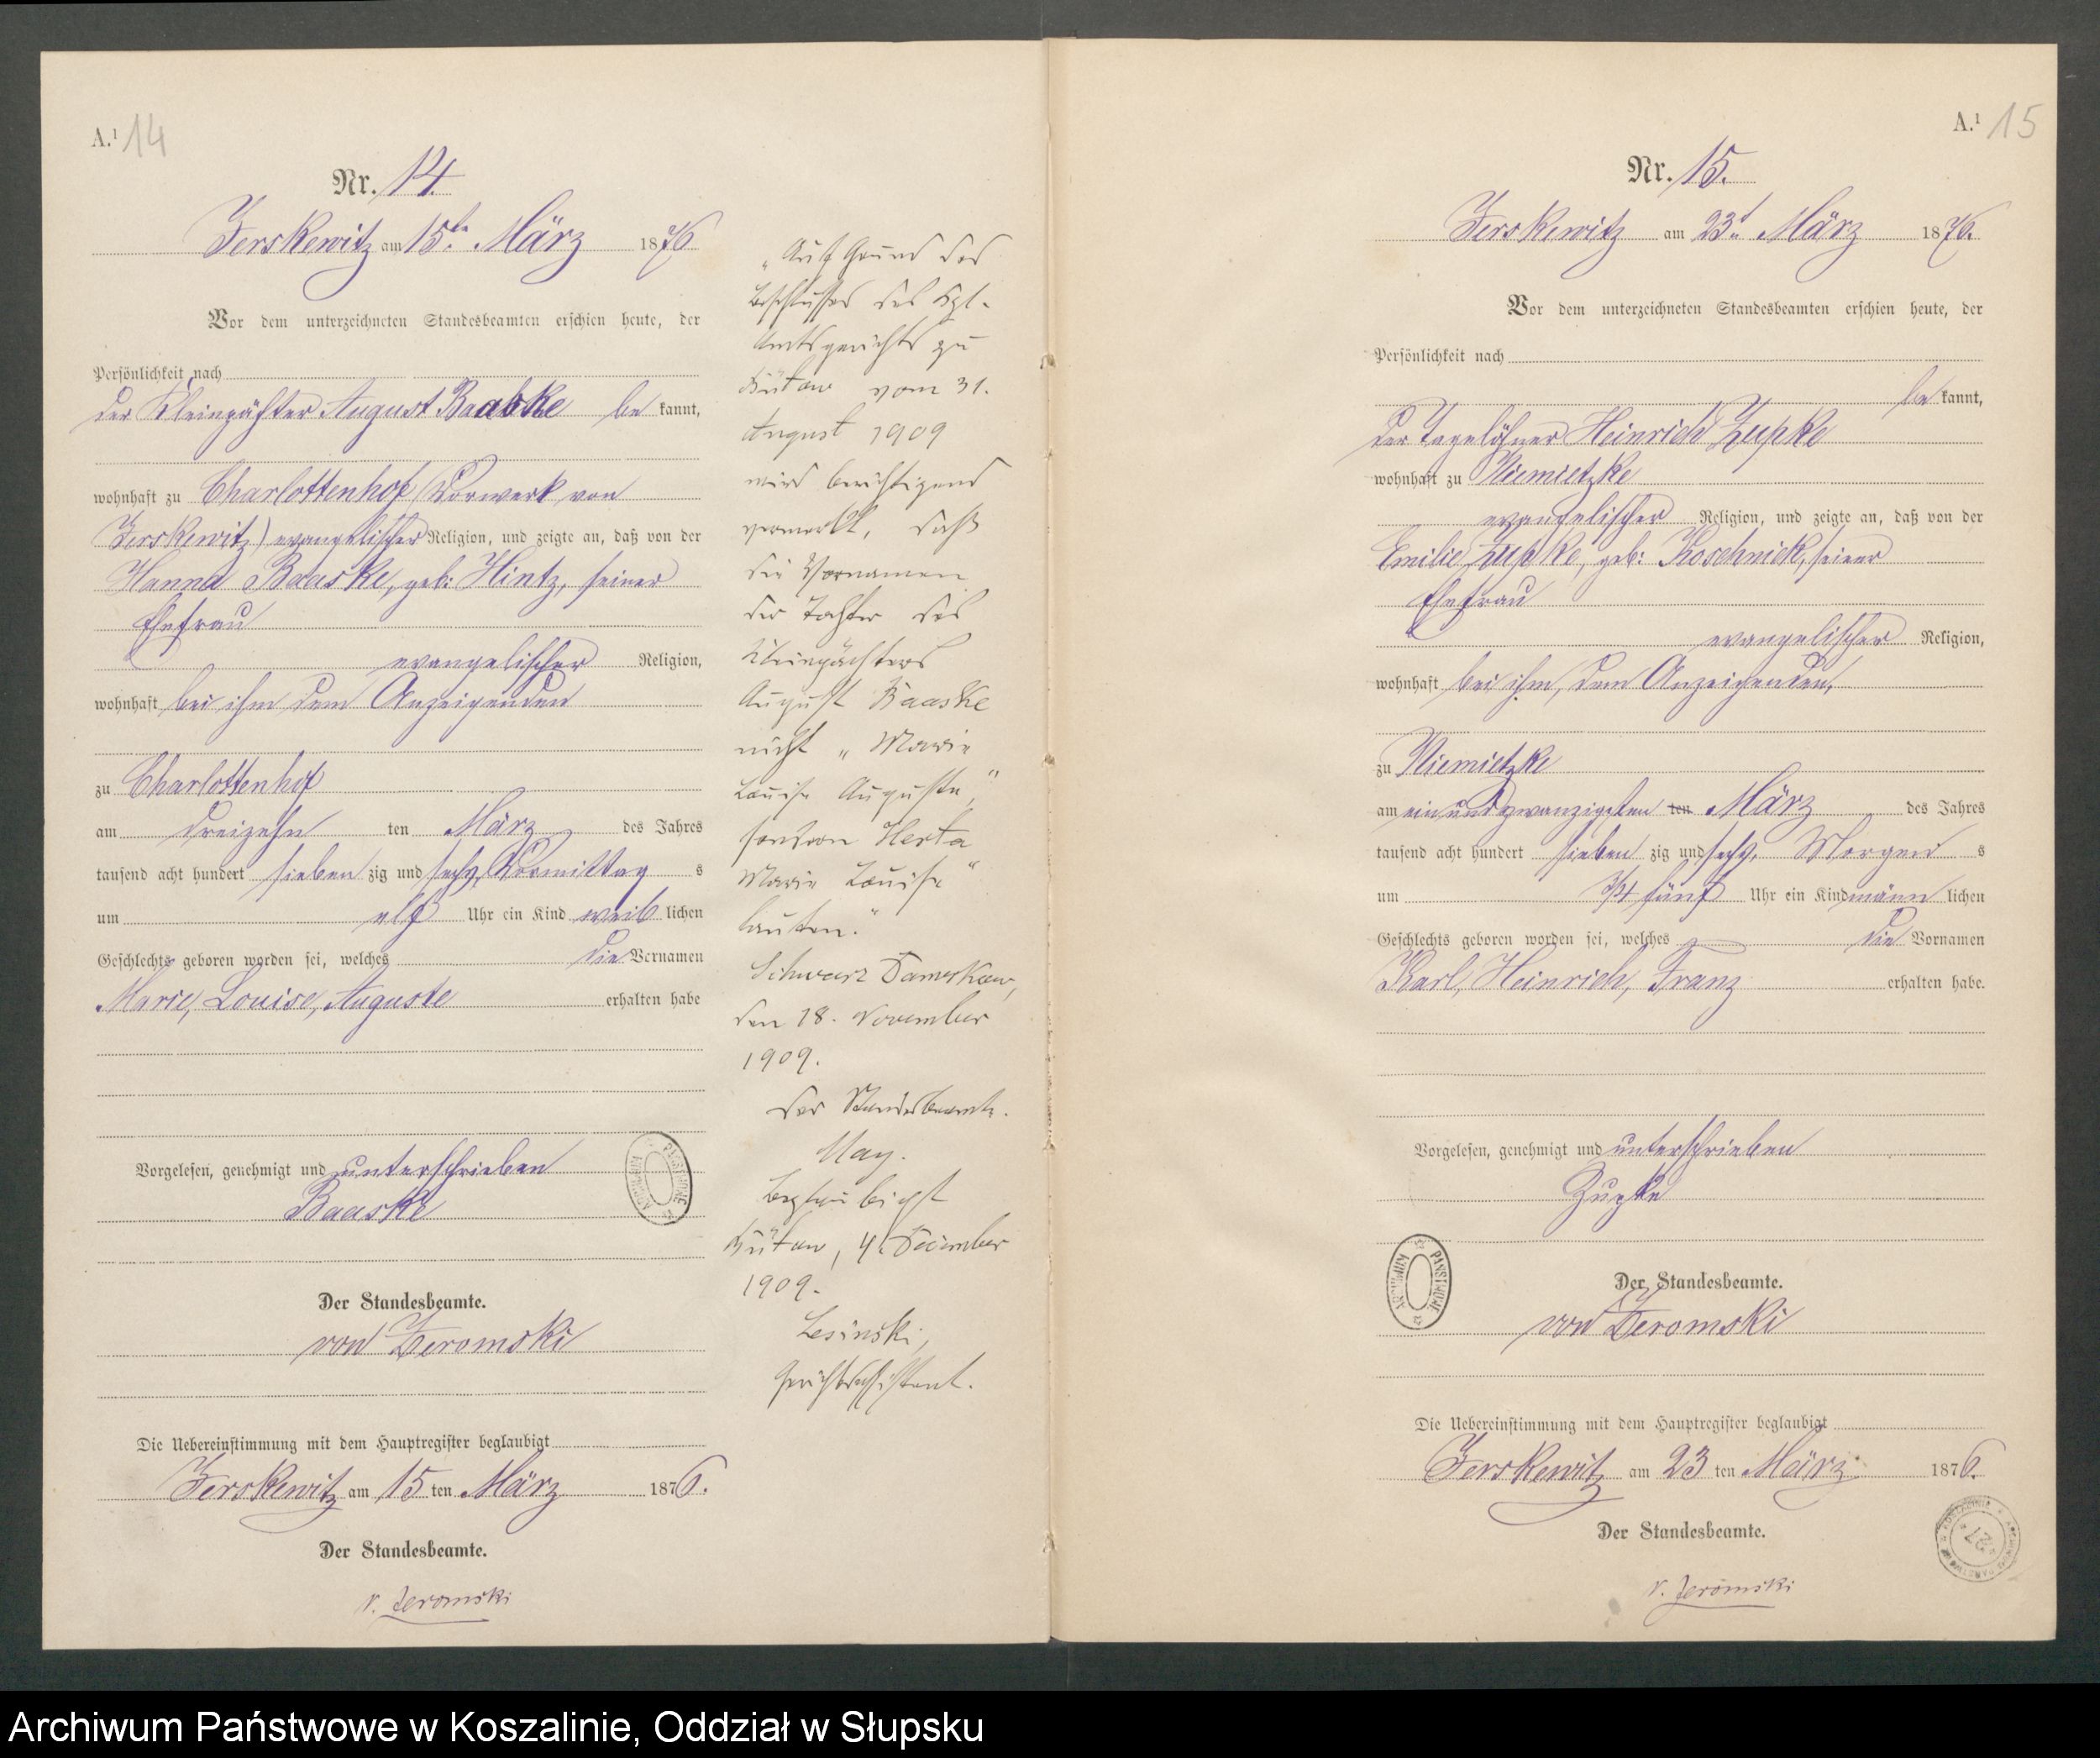 A.¹ 14
Nr. 14.
Jerskewitz am 15ten März 1876
Vor dem unterzeichneten Standesbeamten erschien heute, der
Persönlichkeit nach
der Kleinpächter August Baaske be kannt,
wohnhaft zu Charlottenhof (Vorwerk von
Jerskewitz) evangelischer Religion, und zeigte an, daß von der
Hanna Baaske, geb: Hintz, seiner
Ehefrau
evangelischer Religion,
wohnhaft bei ihm dem Anzeigenden
zu Charlottenhof
am dreizehn ten März des Jahres
tausend acht hundert sieben zig und sechs, Vormittag s
um elf Uhr ein Kind weib lichen
Geschlechts geboren worden sei, welches die Vornamen
Marie, Louise, Auguste erhalten habe
Vorgelesen, genehmigt und unterschrieben
Baaske
Der Standesbeamte.
von Zeromski
Die Uebereinstimmung mit dem Hauptregister beglaubigt
Jerskewitz am 15 ten März 1876.
Der Standesbeamte.
v. Zeromski
„Auf Grund des
Beschlusses des Kgl.
Amtsgerichts zu
Bütow vom 31.
August 1909
wird berichtigend
vermerkt, daß
die Vornamen
der Tochter des
Kleinpächters
August Baaske
nicht „Marie
Louise Auguste“,
sondern Herta
Marie Louise“
lauten.“
Schwarz Damerkow,
den 18. November
1909.
Der Standesbeamte.
May.
Beglaubigt
Bütow, 4. Dezember
1909.
Lesinski,
Gerichtsassistent.
ARCHIWUM PAŃSTWOWE
A.¹ 15
Nr. 15.
Jerskewitz am 23t März 1876.
Vor dem unterzeichneten Standesbeamten erschien heute, der
Persönlichkeit nach
be kannt,
der Tagelöhner Heinrich Zupke
wohnhaft zu Niemietzke
evangelischer Religion, und zeigte an, daß von der
Emilie Zupke, geb: Koschnick, seiner
Ehefrau
evangelischer Religion,
wohnhaft bei ihm, dem Anzeigenden,
zu Niemietzke
am ein und zwanzigsten ten März des Jahres
tausend acht hundert sieben zig und sechs, Morgen s
um ¾ fünf Uhr ein Kind männ lichen
Geschlechts geboren worden sei, welches die Vornamen
Karl, Heinrich, Franz erhalten habe.
Vorgelesen, genehmigt und unterschrieben
Zupke
ARCHIWUM PAŃSTWOWE
Der Standesbeamte.
von Zeromski
Die Uebereinstimmung mit dem Hauptregister beglaubigt
Jerskewitz am 23 ten März 1876.
Der Standesbeamte.
v. Zeromski
27
Archiwum Państwowe w Koszalinie, Oddział w Słupsku